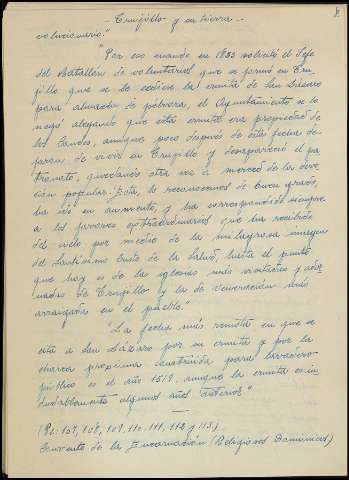 8
- Trujillo y su tierra -
volucionario."
"Por eso cuando en 1833 solicitó el Jefe
del Batallón de voluntarios que se formó en Tru-
jillo que se le cediera la ermita de San Lázaro
para almacén de pólvora, el Ayuntamiento se lo
negó alegando que esta ermita era propiedad de
los Condes, aunque poco después de esta fecha de-
jaron de vivir en Trujillo y desapareció el pa-
tronato, quedando otra vez a merced de la devo-
ción popular. Esta, lo reconocemos de buen grado,
ha ido en aumento, y ha correspondido siempre
a los favores extraordinarios que ha recibido
del cielo por medio de la milagrosa imagen
del Santísimo Cristo de la Salud, hasta el punto
que hoy es de las iglesias más visitadas y ador
nadas de Trujillo y la de veneración más
arraigada en el pueblo."
"La fecha más remota en que se
cita a San Lázaro por su ermita y por la
charca próxima construida para lavadero
público es el año 1519, aunque la ermita es in-
dudablemente algunos años anterior."
(Pp. 107, 108, 109, 110, 111, 112 y 113.)
Convento de la Encarnación (Religiosos Dominicos)